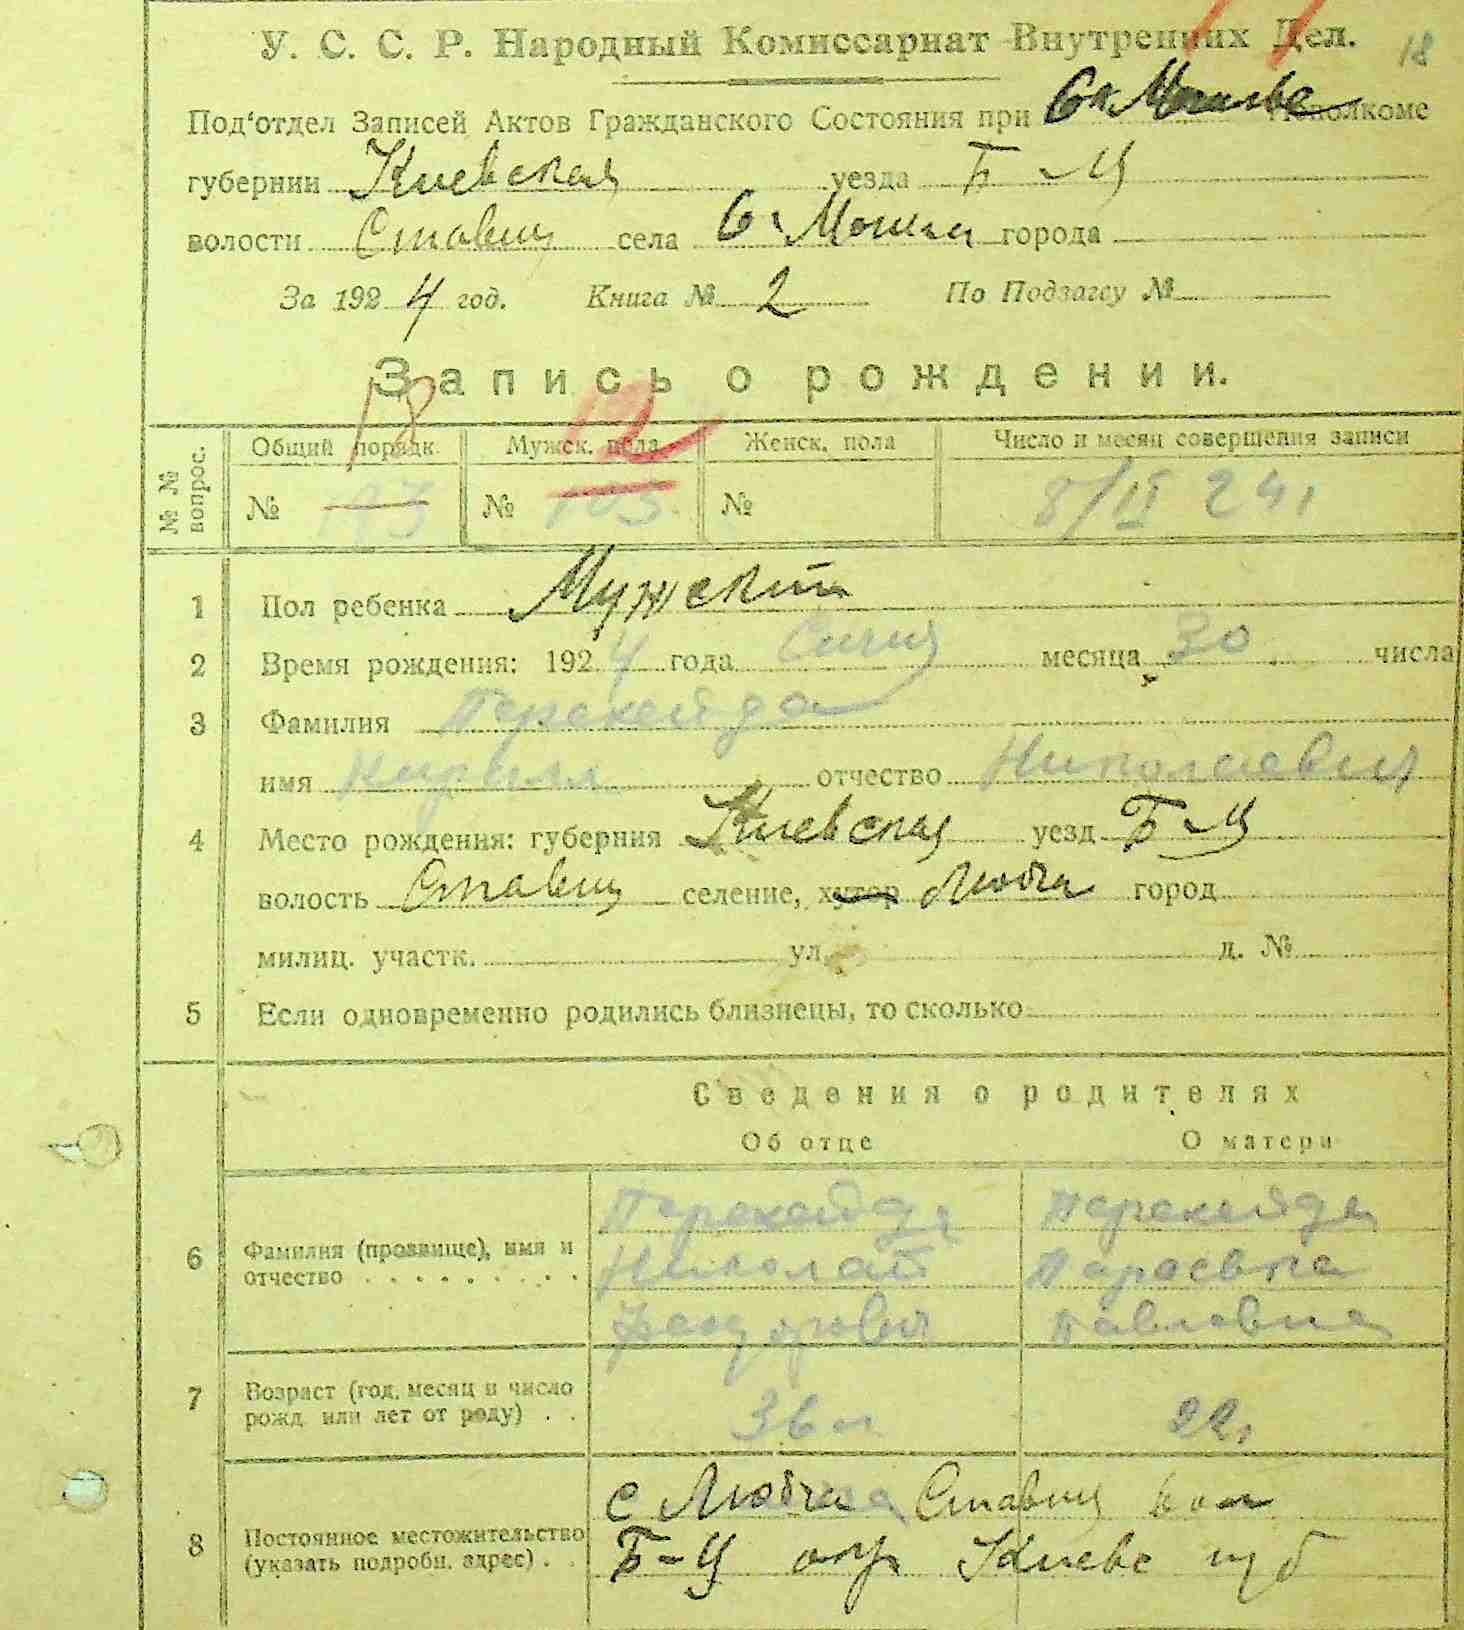 У. С. С. Р. Народный Комиссариат Внутренних Дел. 18
Под'отдел Записей Актов Гражданского Состояния при Исполкоме
губернии Киевская уезда Б-Ц
волости Ставищ села города
За 1924 год. Книга № 2 По Подзагсу №
Запись о рождении.
№№ вопрос. Общий порядк. Мужск. пола Женск. пола Число и месяц совершения записи
18 12
№ № 103 № 8/II 24
1 Пол ребенка Мужской
2 Время рождения: 1924 года Січня месяца 30 числа
3 Фамилия Перекейда
имя Кирилл отчество Николаевич
4 Место рождения: губерния Киевская уезд Б-Ц
волость Ставищ селение, хутор Любча город
милиц. участк. ул. д. №
5 Если одновременно родились близнецы, то сколько
Сведения о родителях
Об отце О матери
6 Фамилия (прозвище), имя и отчество
Перекейда Перекейда
Николай Параскева
Федорович Павловна
7 Возраст (год, месяц и число рожд. или лет от роду) 36 л 22
8 Постоянное местожительство (указать подробн. адрес)
с Любча Ставищ вол
Б-Ц окр Киевс губ